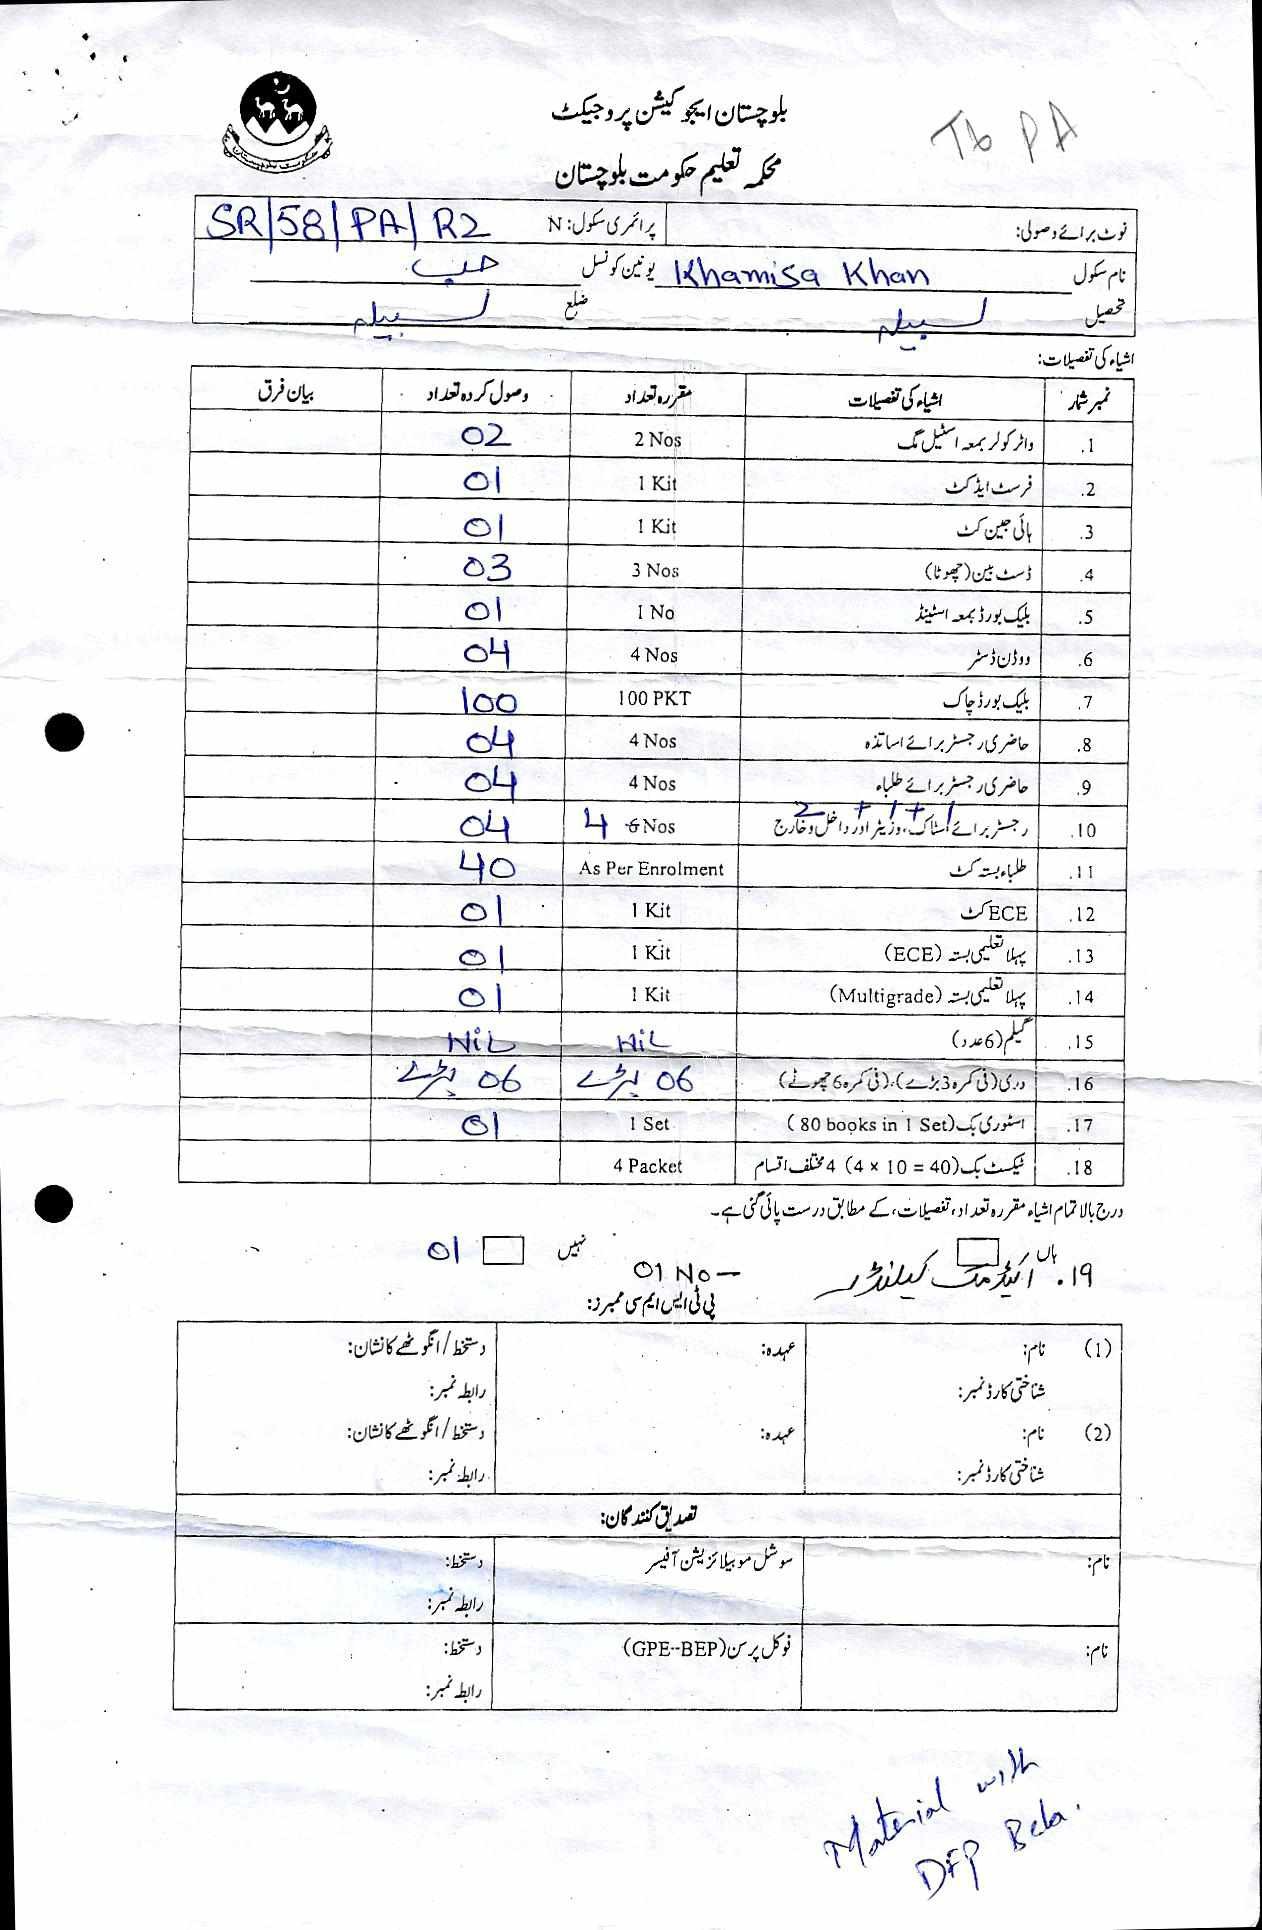 بلوچستان ایجوکیشن پروجیکٹ
Tb PA
محکمہ تعلیم حکومت بلوچستان
نوٹ برائے وصولی: پرائمری سکول: N SR/58/PA/R2
نام سکول Khamisa Khan یونین کونسل حب
تحصیل لسبیلہ ضلع لسبیلہ
اشیاء کی تفصیلات:
نمبر شمار اشیاء کی تفصیلات مقررہ تعداد وصول کردہ تعداد بیان فرق
1. واٹر کولر بمعہ اسٹیل مگ 2 Nos 02
2. فرسٹ ایڈ کٹ 1 Kit 01
3. ہائی جین کٹ 1 Kit 01
4. ڈسٹ بین (چھوٹا) 3 Nos 03
5. بلیک بورڈ بمعہ اسٹینڈ 1 No 01
6. ووڈن ڈسٹر 4 Nos 04
7. بلیک بورڈ چاک 100 PKT 100
8. حاضری رجسٹر برائے اساتذہ 4 Nos 04
9. حاضری رجسٹر برائے طلباء 4 Nos 04
2 + 1 + 1
10. رجسٹر برائے اسٹاک، وزیٹر اور داخل و خارج 4 6 Nos 04
11. طلباء بستہ کٹ As Per Enrolment 40
12. ECE کٹ 1 Kit 01
13. پہلا تعلیمی بستہ (ECE) 1 Kit 01
14. پہلا تعلیمی بستہ (Multigrade) 1 Kit 01
15. گیلم (6 عدد) NiL NiL
16. دری (فی کمرہ 3 بڑے)، (فی کمرہ 6 چھوٹے) 06 بڑے 06 بڑے
17. اسٹوری بک (80 books in 1 Set) 1 Set 01
18. ٹیکسٹ بک (4 × 10 = 40) 4 مختلف اقسام 4 Packet
درج بالا تمام اشیاء مقررہ تعداد، تفصیلات، کے مطابق درست پائی گئی ہے۔
ہاں نہیں 01
19. اکیڈمک کیلنڈر 01 No –
پی ٹی ایس ایم سی ممبرز:
(1) نام: عہدہ: دستخط / انگوٹھے کا نشان:
شناختی کارڈ نمبر: رابطہ نمبر:
(2) نام: عہدہ: دستخط / انگوٹھے کا نشان:
شناختی کارڈ نمبر: رابطہ نمبر:
تصدیق کنندگان:
نام: سوشل موبیلائزیشن آفیسر دستخط:
رابطہ نمبر:
نام: فوکل پرسن (GPE--BEP) دستخط:
رابطہ نمبر:
Material with
DFP Bela.